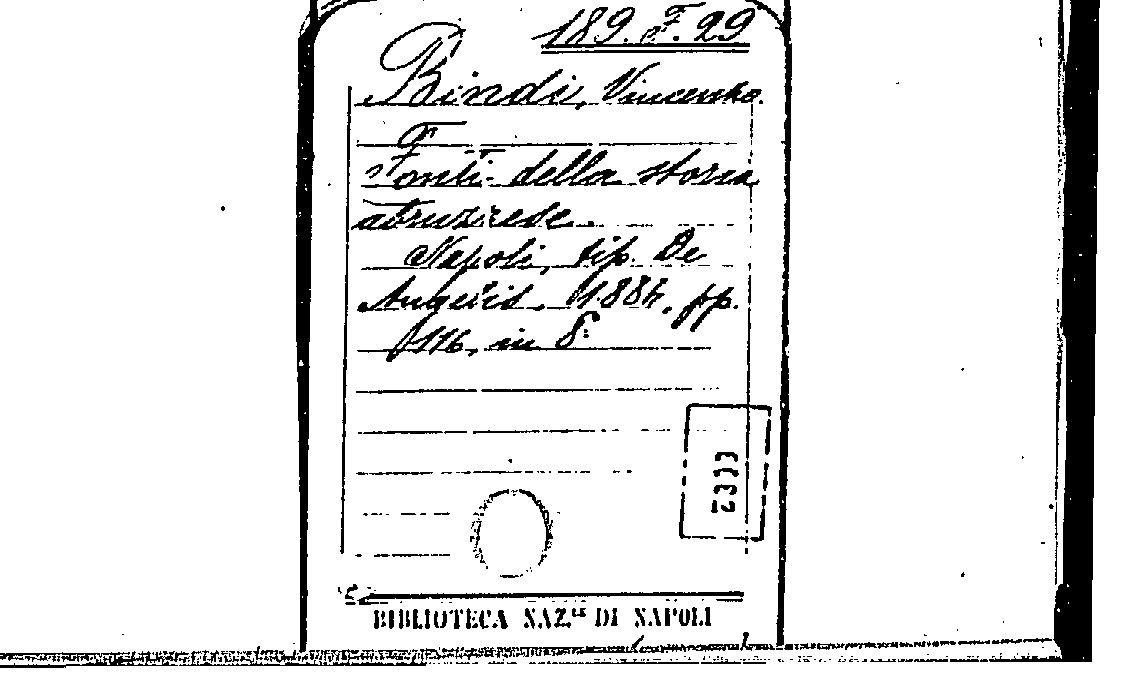 189. F. 29
Bindi, Vincenzo.
Fonti della storia
abruzzese.
Napoli, tip. De
Angelis. 1884, pp.
116, in 8.
BIBLIOTECA NAZ.LE DI NAPOLI